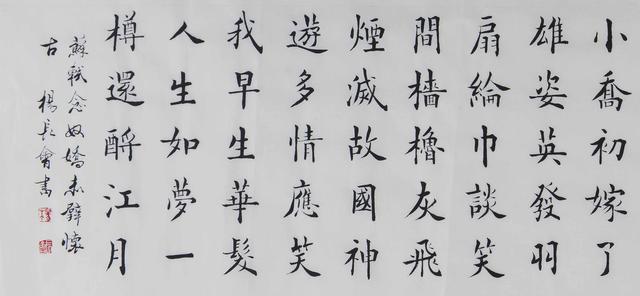 小喬初嫁了
雄姿英發羽
扇綸巾談笑
間檣櫓灰飛
煙滅故國神
遊多情應笑
我早生華髮
人生如夢一
樽還酹江月
蘇軾念奴嬌赤壁懷
古 楊長會書